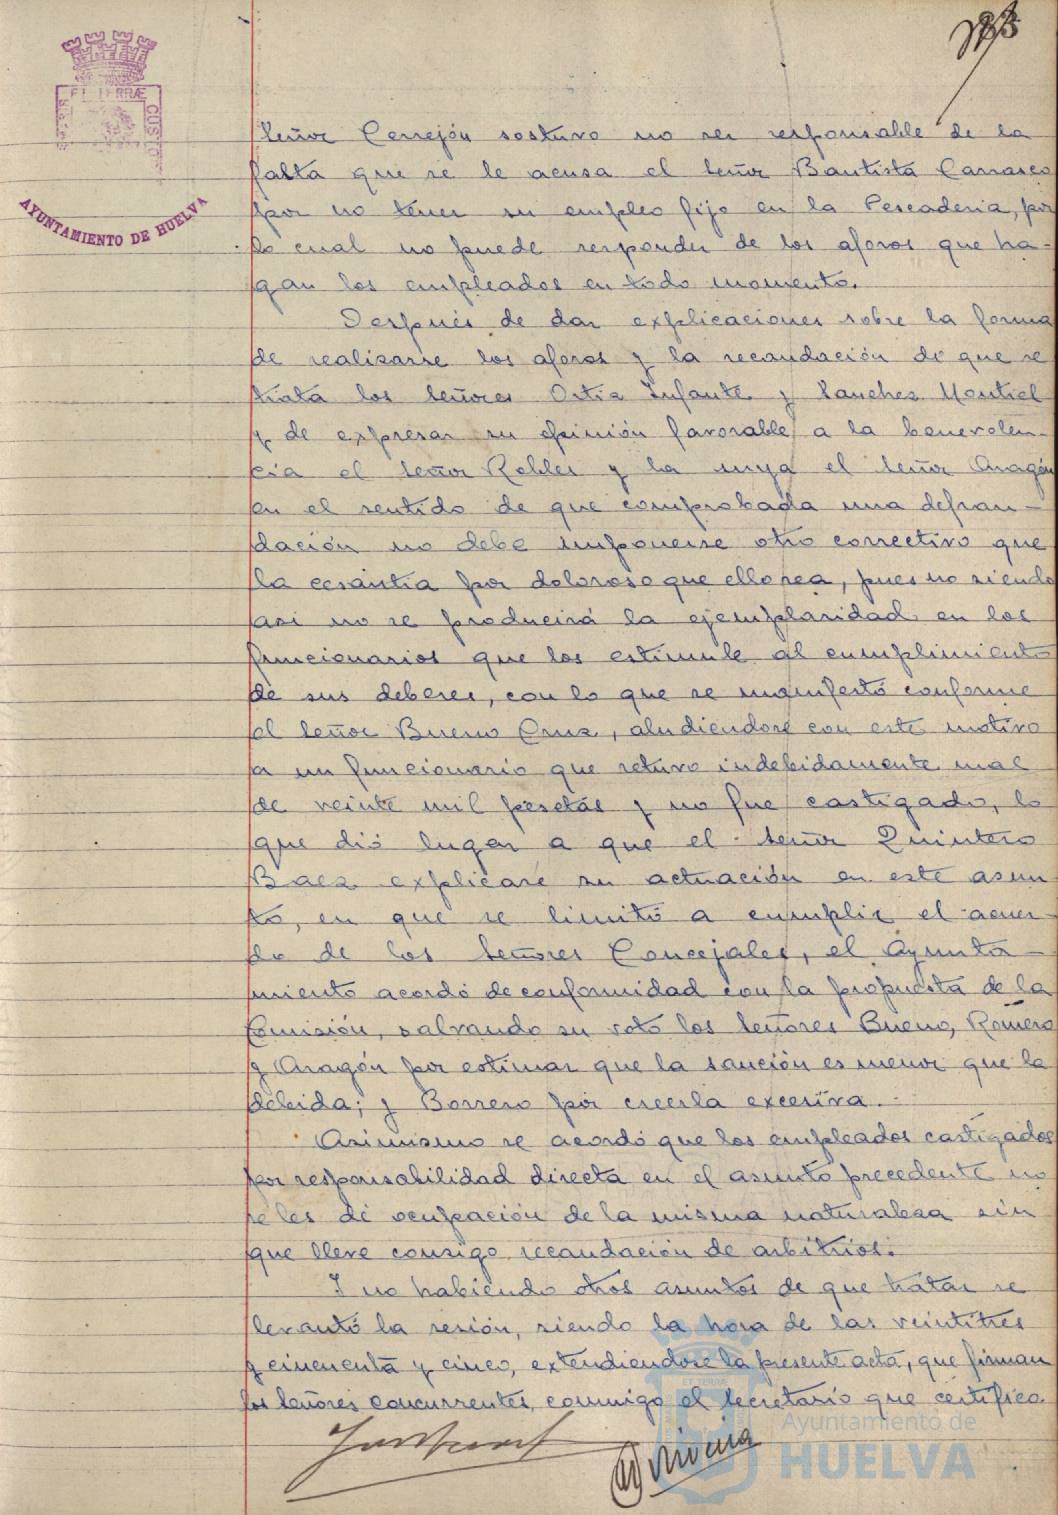 ET TERRÆ
CUSTO
AYUNTAMIENTO DE HUELVA
Señor Cerrejón sostuvo no ser responsable de la
falta que se le acusa el Señor Bautista Carrasco
por no tener su empleo fijo en la Pescaderia, por
lo cual no puede responder de los aforos que ha-
gan los empleados en todo momento.
Despues de dar explicaciones sobre la forma
de realizarse los aforos y la recaudación de que se
trata los Señores Ortiz Infante y Sanchez Montiel
y de expresar su opinión favorable a la benevolen-
cia el Señor Robles y la suya el Señor Aragón
en el sentido de que comprobada una defrau-
dación no debe imponerse otro correctivo que
la cesantia por doloroso que ello sea, pues no siendo
asi no se producirá la ejemplaridad en los
funcionarios que los estimule al cumplimiento
de sus deberes, con lo que se manifestó conforme
el Señor Bueno Cruz, aludiendose con este motivo
a un funcionario que retuvo indebidamente mas
de veinte mil pesetas y no fue castigado, lo
que dió lugar a que el Señor Quintero
Baez explicase su actuación en este asun
to, en que se limitó a cumplir el acuer-
do de los Señores Concejales, el Ayunta-
miento acordó de conformidad con la propuesta de la
Comisión, salvando su voto los Señores Bueno, Romero
y Aragón por estimar que la sanción es menor que la
debida; y Borrero por creerla excesiva.
Asimismo se acordó que los empleados castigados
por responsabilidad directa en el asunto precedente no
se les dé ocupación de la misma naturaleza sin
que lleve consigo recaudación de arbitrios.
Y no habiendo otros asuntos de que tratar se
levantó la sesión, siendo la hora de las veintitres
y cincuenta y cinco, extendiendose la presente acta, que firman
los Señores concurrentes conmigo el Secretario que certifico.
Ayuntamiento de
HUELVA